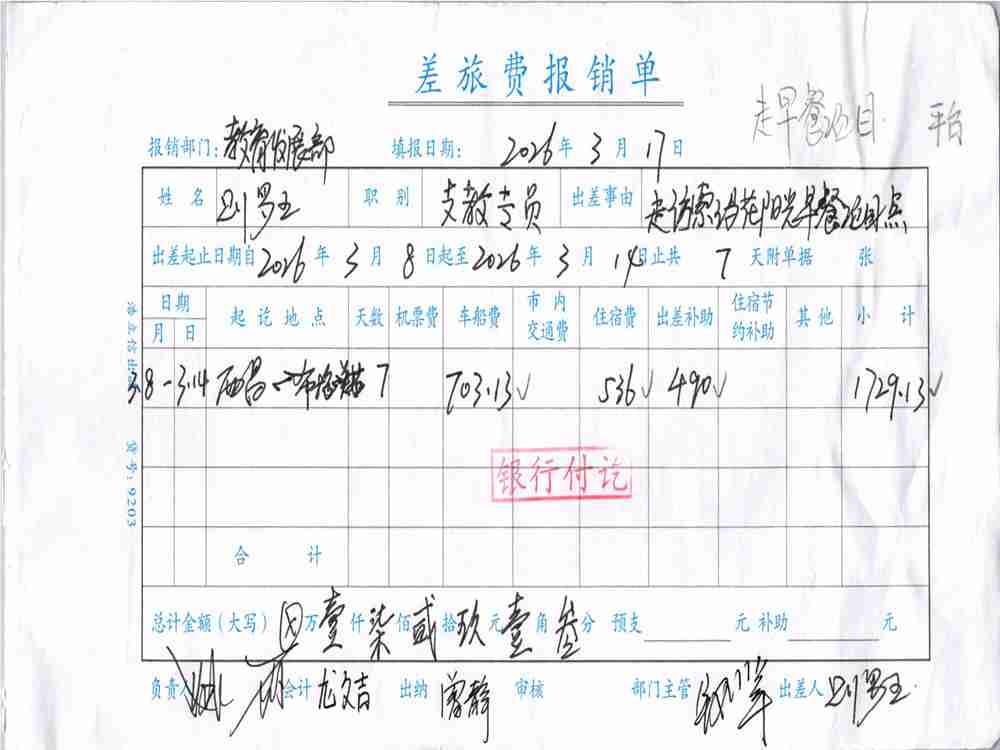 差旅费报销单
走早餐项目. 平台
报销部门：教育发展部 填报日期： 2026年3月17日
姓名 职别 支教专员 出差事由 走访索玛花阳光早餐项目点
出差起止日期自2026年3月8日起至2026年3月14日止共7天附单据 张
日期 起讫地点 天数 机票费 车船费 市内交通费 住宿费 出差补助 住宿节约补助 其他 小计
月 日
3.8-3.14 西昌 7 703.13√ 536√ 490√ 1729.13√
银行付讫
合计
总计金额(大写) 万壹仟柒佰贰拾玖元壹角叁分 预支 元 补助 元
负责人 会计 龙文吉 出纳 曾静 审核 部门主管 出差人
货号：9203